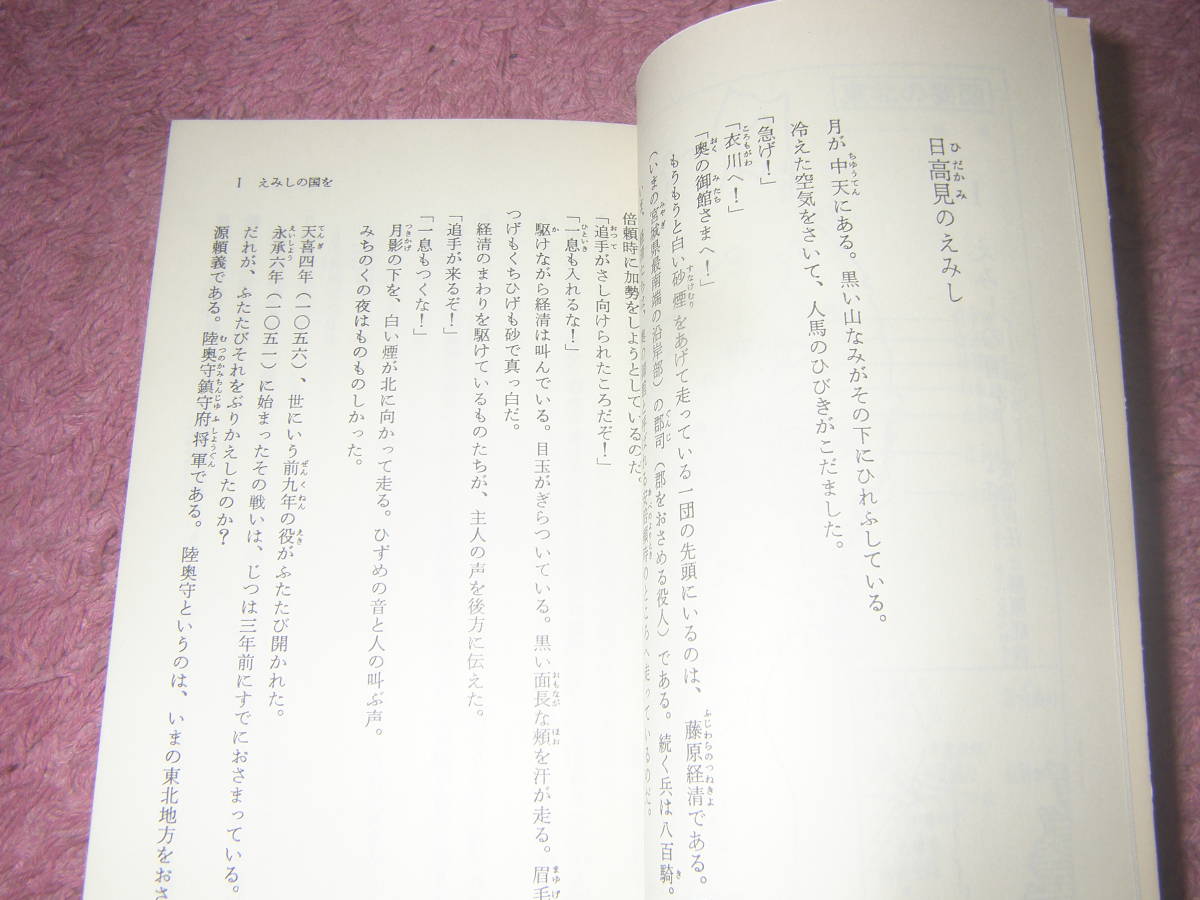 日高見のえみし
月が中天にある。黒い山なみがその下にひれふしている。
冷えた空気をさいて、人馬のひびきがこだました。
「急げ!」
「衣川へ!」
「奥の御館さまへ!」
もうもうと白い砂煙をあげて走っている一団の先頭にいるのは、藤原経清である。
(いまの宮城県最南端の沿岸部)の郡司(郡をおさめる役人)である。続く兵は八百騎。
のところへ走っているのだ。
倍頼時に加勢をしようとしているのだ。
「追手がさし向けられたころだぞ!」
「一息も入れるな!」
駆けながら経清は叫んでいる。目玉がぎらついている。黒い面長な頰を汗が走る。眉毛
つげもくちひげも砂で真っ白だ。
経清のまわりを駆けているものたちが、主人の声を後方に伝えた。
「追手が来るぞ!」
「一息もつくな!」
月影の下を、白い煙が北に向かって走る。ひずめの音と人の叫ぶ声。
みちのくの夜はものものしかった。
天喜四年(一〇五六)、世にいう前九年の役がふたたび開かれた。
永承六年(一〇五一)に始まったその戦いは、じつは三年前にすでにおさまっている。
だれが、ふたたびそれをぶりかえしたのか?
源頼義である。陸奥守鎮守府将軍である。陸奥守というのは、いまの東北地方をおさ
I えみしの国を